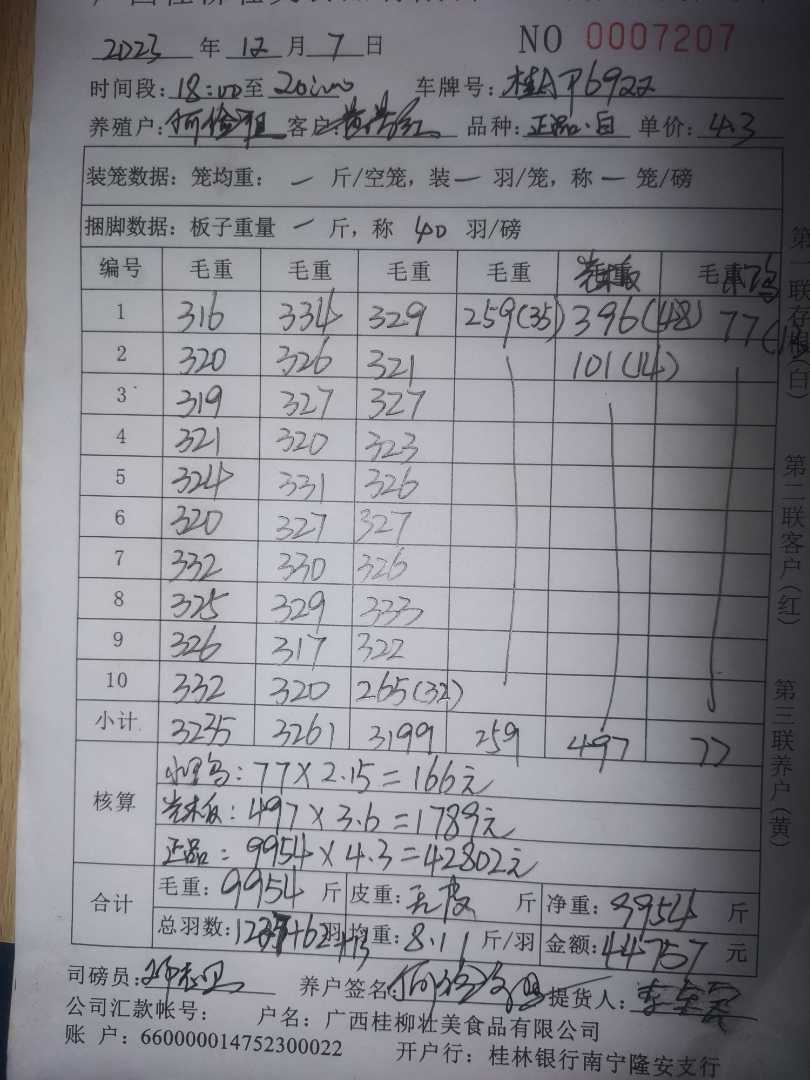 2023 年 12 月 7 日 NO 0007207
时间段: 18:00 至 20:00 车牌号: 桂AP6922
养殖户: 客户: 品种: 正品.白 单价: 4.3
装笼数据: 笼均重: 一 斤/空笼, 装 一 羽/笼, 称 一 笼/磅
捆脚数据: 板子重量 一 斤, 称 40 羽/磅
编号 毛重 毛重 毛重 毛重 毛重
1 316 334 329 259(35) 396(48) 77
2 320 326 321 101(14)
3 319 327 327
4 321 320 323
5 324 331 326
6 320 327 327
7 332 330 326
8 325 329 333
9 326 317 322
10 332 320 265(32)
小计 3235 3261 3199 259 497 77
核算
77×2.15=166元
497×3.6=1789元
正品: 9954×4.3=42802元
合计
毛重: 9954 斤 皮重: 斤 净重: 9954 斤
总羽数: 羽 均重: 8.11 斤/羽 金额: 44757 元
司磅员: 养户签名: 提货人:
公司汇款帐号: 户名: 广西桂柳壮美食品有限公司
账 户: 660000014752300022 开户行: 桂林银行南宁隆安支行
第一联存根(白) 第二联客户(红) 第三联养户(黄)